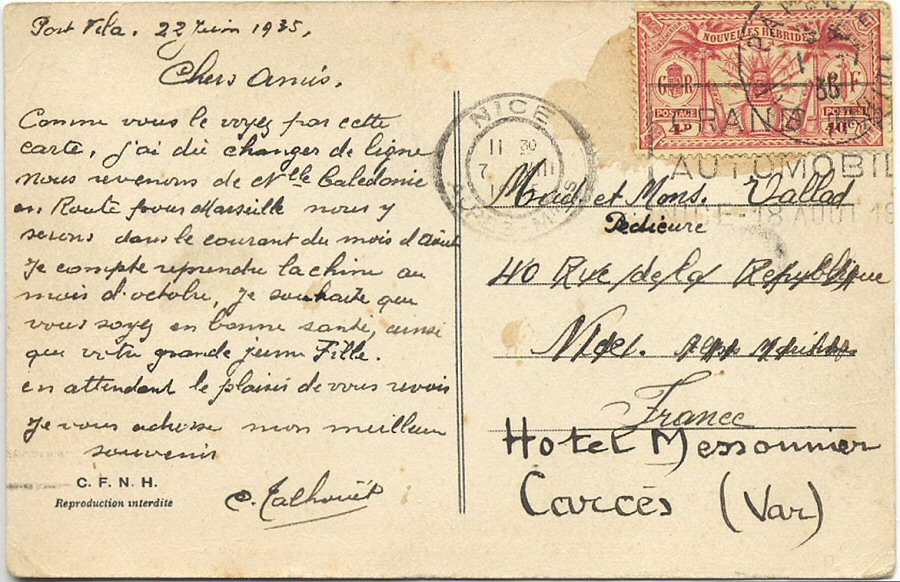 Port Vila. 22 Juin 1935.
Chers Amis.
Comme vous le voyez par cette
carte, j'ai dû changer de ligne
nous revenons de Nlle Caledonie
en Route pour Marseille nous y
serons dans le courant du mois d'Aout
Je compte reprendre la chine au
mois d'octobre, je souhaite que
vous soyez en bonne santé, ainsi
que votre grande jeune Fille.
en attendant le plaisir de vous revoir
Je vous adresse mon meilleur
souvenir
C. Talhouët
C. F. N. H.
Reproduction interdite
NOUVELLES HÉBRIDES
CONDOMINIUM
G R R F
POSTAGE POSTES
4D 40c
NICE
11 30
7 VIII
ALPES-MMES
GRAND
AUTOMOBIL
NICE-18 AOUT 19
Mad et Mons. Vallad
Pedicure
40 Rue de la Republique
Nice. Alpes Maritimes
France
Hotel Messonnier
Carcès (Var)